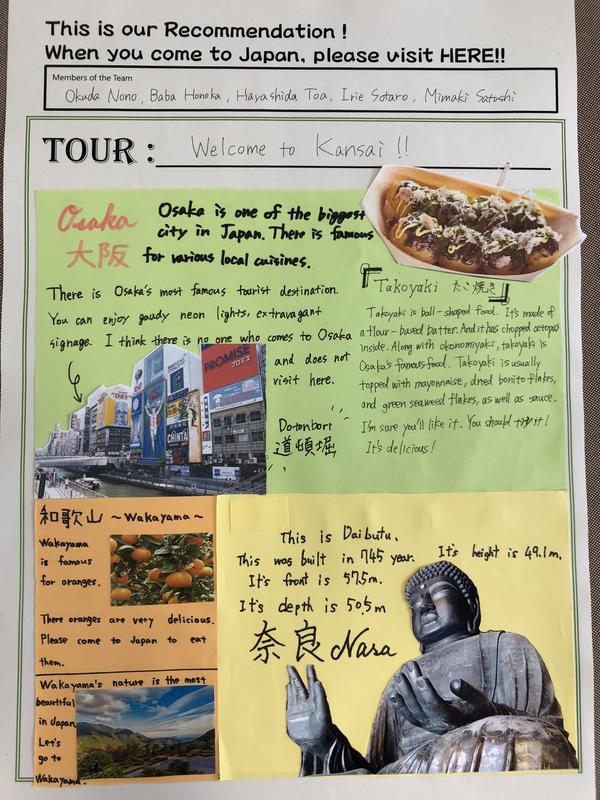 This is our Recommendation !
When you come to Japan, please visit HERE!!
Members of the Team
Okuda Nono, Baba Honoka, Hayashida Toa, Irie Sotaro, Mimaki Satoshi
TOUR : Welcome to Kansai !!
Osaka
大阪
Osaka is one of the biggest
city in Japan. There is famous
for various local cuisines.
There is Osaka's most famous tourist destination.
You can enjoy gaudy neon lights, extravagant
signage. I think there is no one who comes to Osaka
and does not
visit here.
Dotonbori
道頓堀
PROMISE
プロミス
CHINTA
『Takoyaki たこ焼き』
Takoyaki is ball-shaped food. It's made of
a flour-based batter. And it has chopped octopus
inside. Along with okonomiyaki, takoyaki is
Osaka's famous food. Takoyaki is usually
topped with mayonnaise, dried bonito flakes,
and green seaweed flakes, as well as sauce.
I'm sure you'll like it. You should try it!
It's delicious!
和歌山 ~Wakayama~
Wakayama
is famous
for oranges.
There oranges are very delicious.
Please come to Japan to eat
them.
Wakayama's nature is the most
beautiful
in Japan
Let's
go to
Wakayama.
This is Daibutu.
This was built in 745 year. It's height is 49.1m.
It's front is 57.5m.
It's depth is 50.5m
奈良 Nara